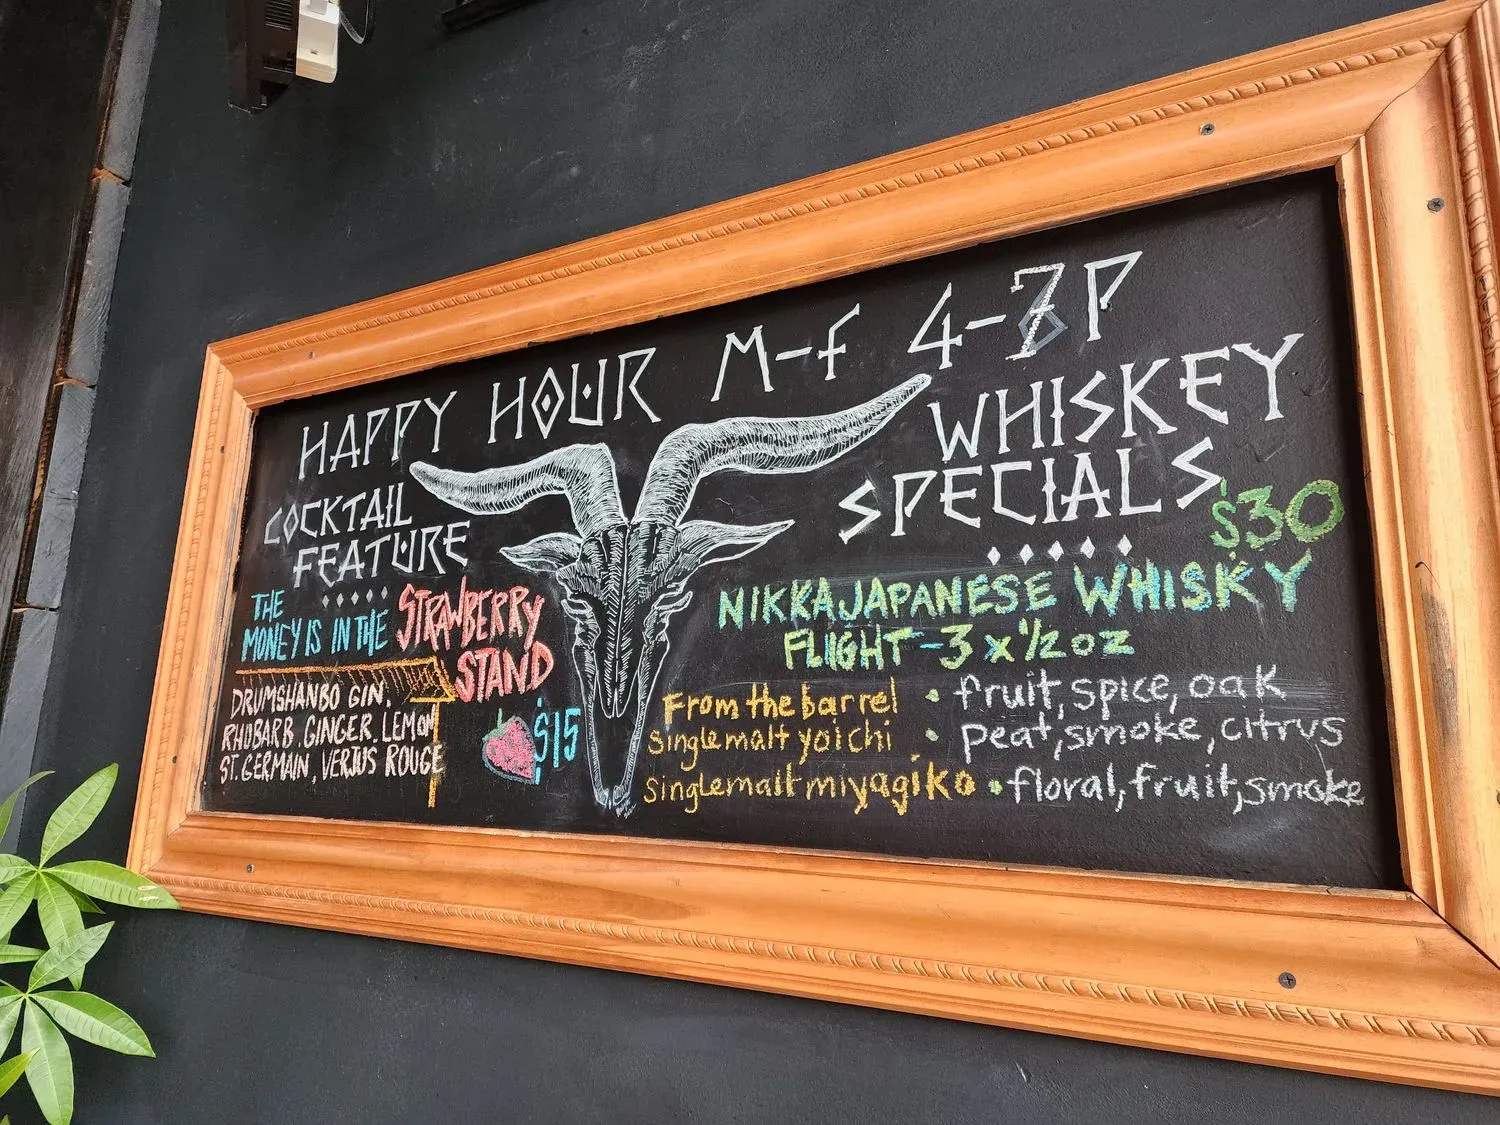 HAPPY HOUR M-F 4-7P
COCKTAIL
FEATURE
THE
MONEY IS IN THE STRAWBERRY
STAND
DRUMSHANBO GIN,
RHUBARB. GINGER. LEMON
ST. GERMAIN, VERJUS ROUGE
$15
WHISKEY
SPECIALS
$30
NIKKA JAPANESE WHISKY
FLIGHT - 3 x 1/2 oz
From the barrel • fruit, spice, oak
Single malt yoichi • peat, smoke, citrus
Single malt miyagiko • floral, fruit, smoke